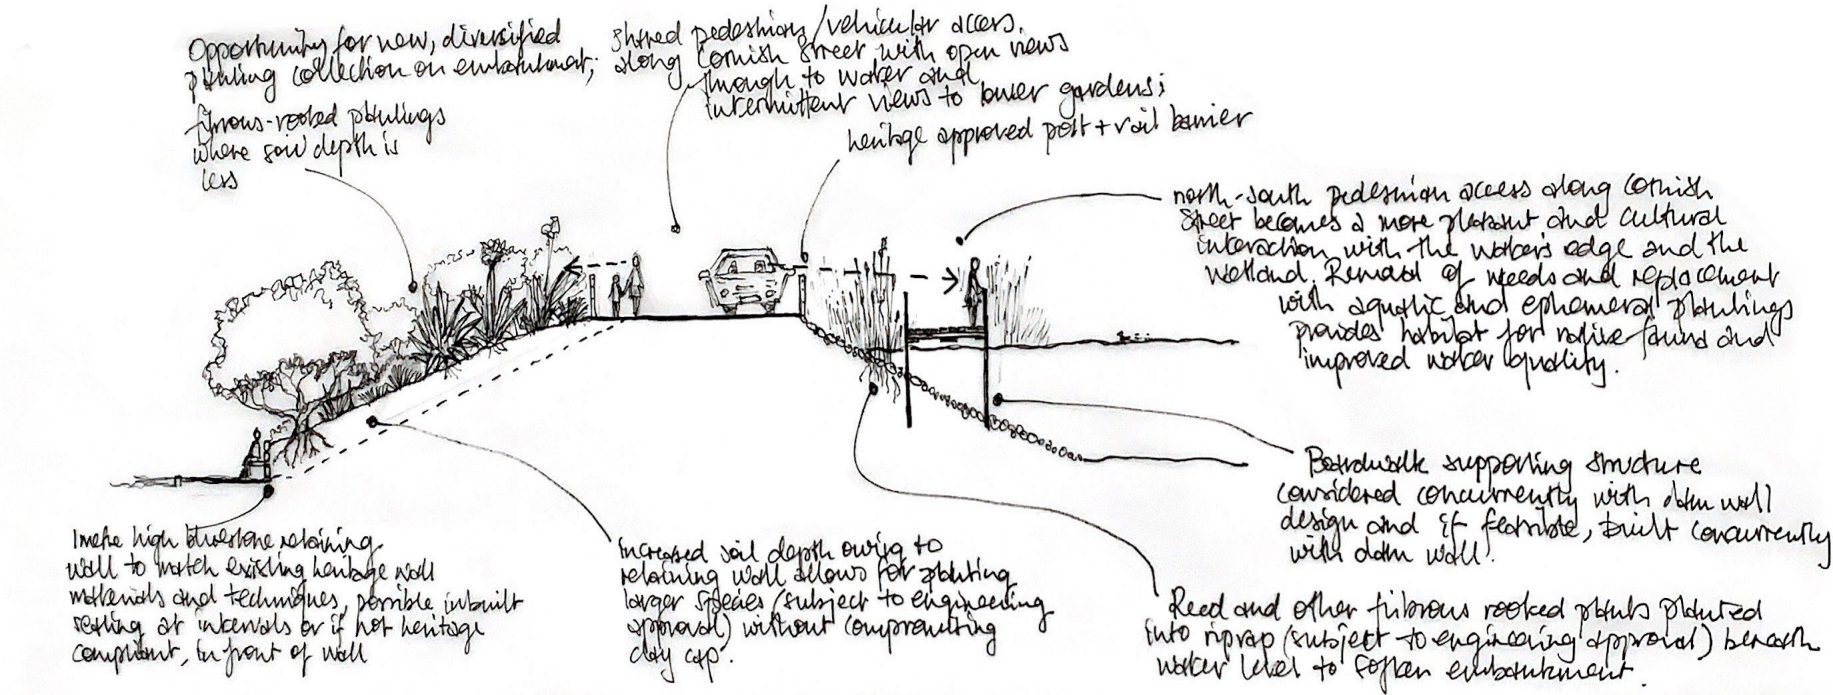 Opportunity for new, diversified
planting collection on embankment;
fibrous-rooted plantings
where soil depth is
less
shared pedestrian/vehicular access
along Cornish Street with open views
through to water and
intermittent views to lower gardens;
heritage approved post + rail barrier
north-south pedestrian access along Cornish
Street becomes a more pleasant and cultural
interaction with the water's edge and the
wetland. Removal of weeds and replacement
with aquatic and ephemeral plantings
provides habitat for native fauna and
improved water quality.
Boardwalk supporting structure
considered concurrently with dam wall
design and if feasible, built concurrently
with dam wall.
1 metre high bluestone retaining
wall to match existing heritage wall
materials and techniques, possible inbuilt
seating at intervals or if not heritage
compliant, in front of wall
increased soil depth owing to
retaining wall allows for planting
larger species (subject to engineering
approval) without compromising
clay cap.
Reed and other fibrous rooted plants planted
into riprap (subject to engineering approval) beneath
water level to soften embankment.